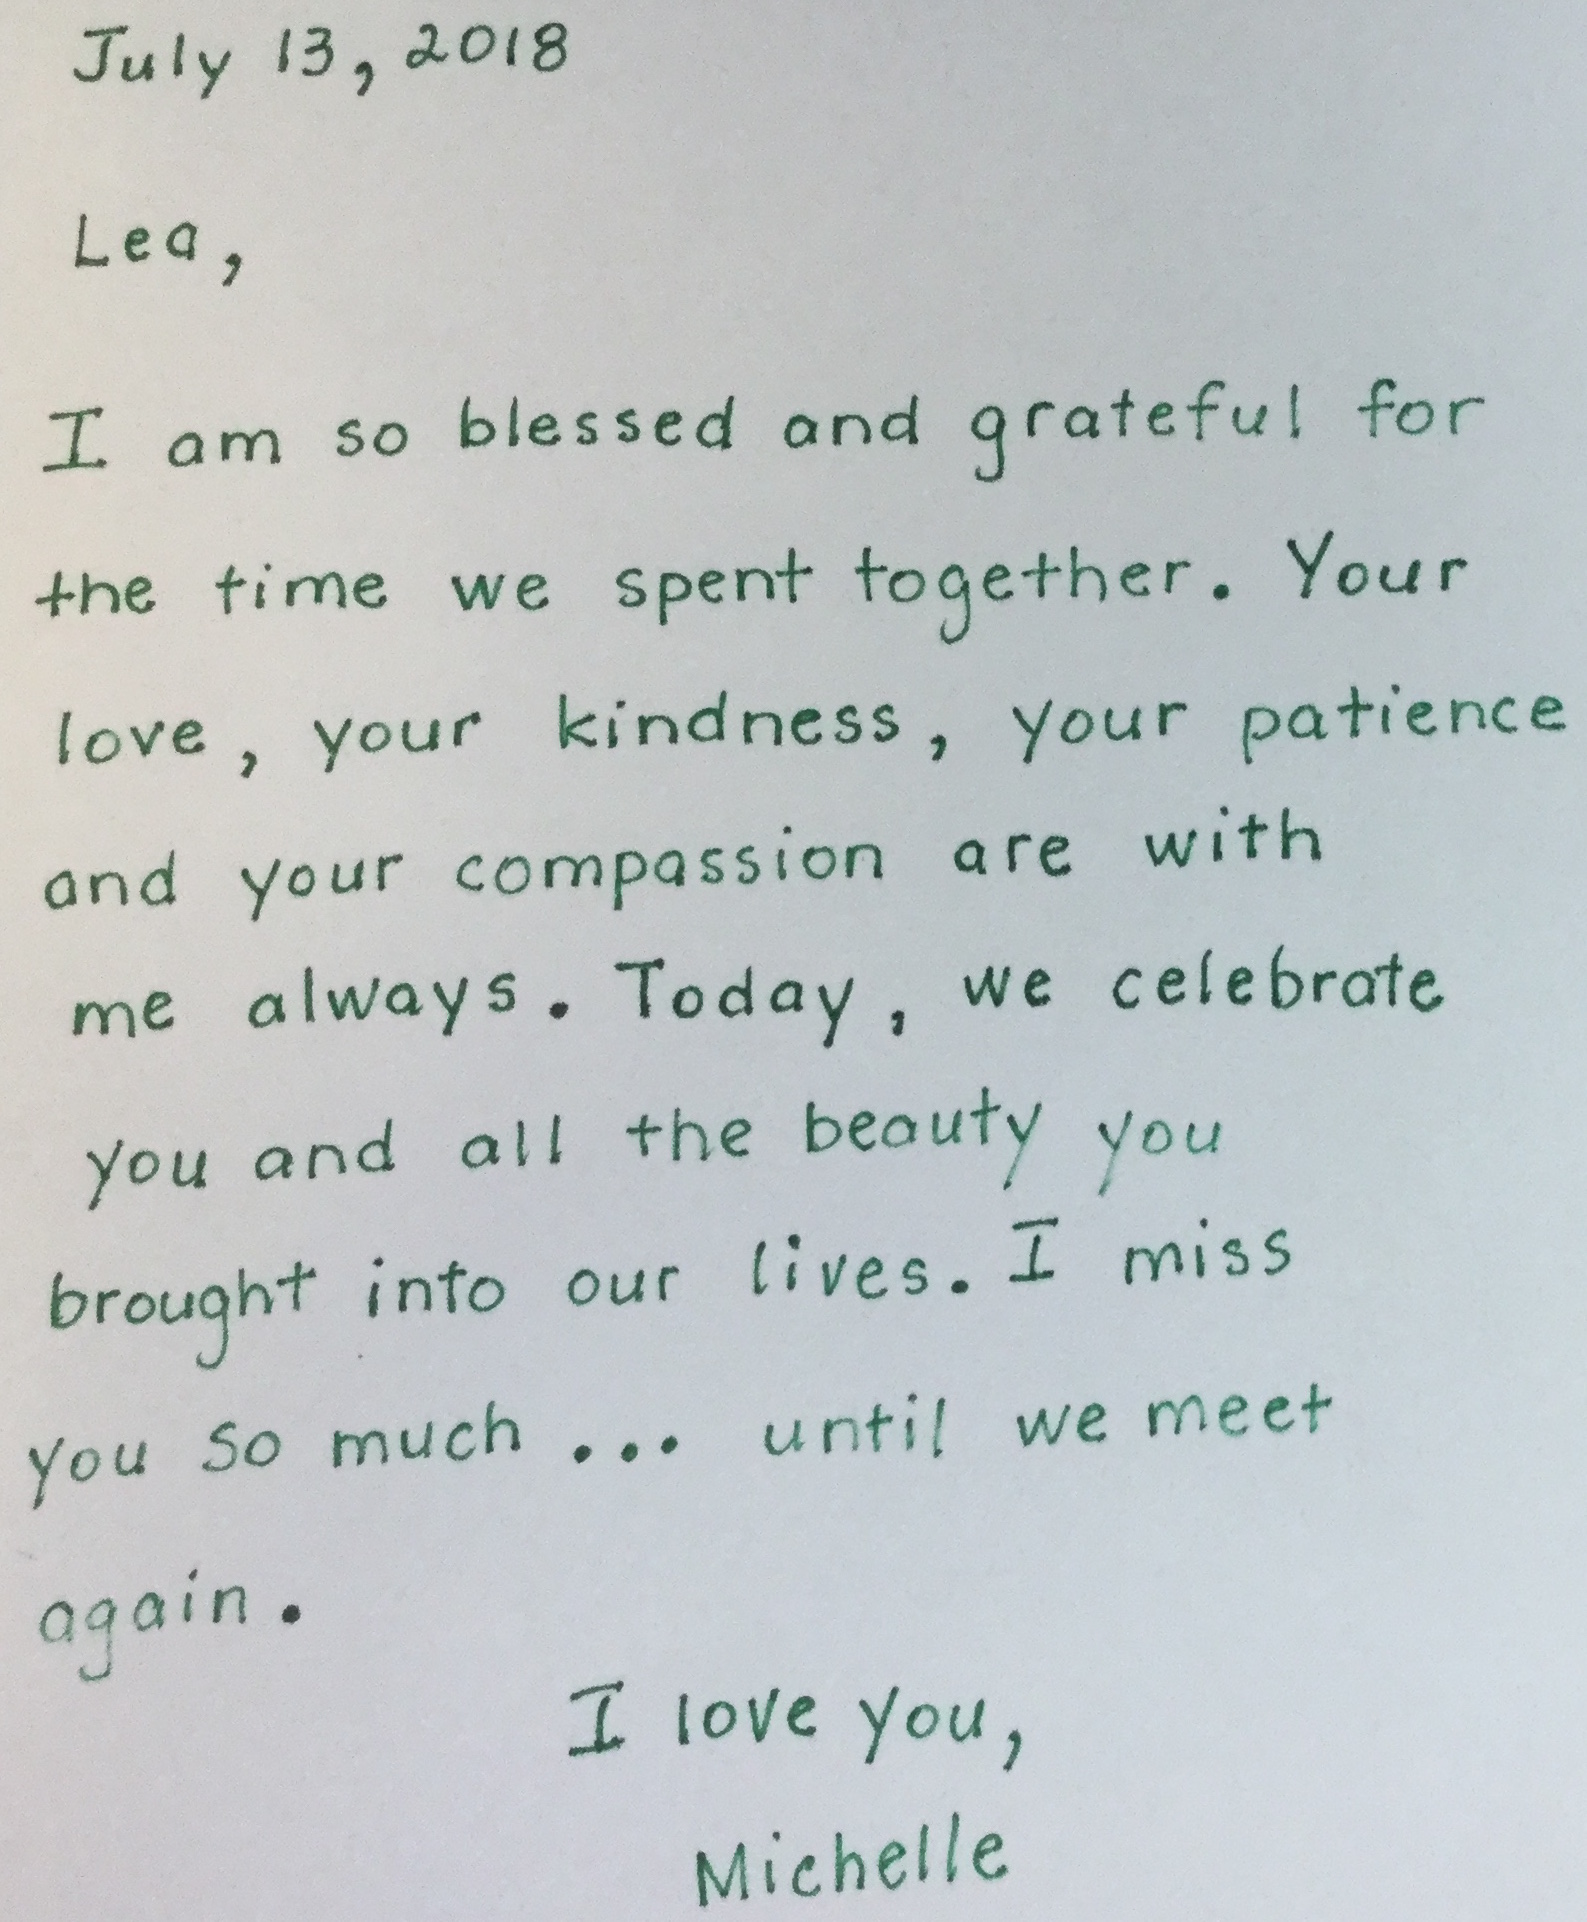 July 13, 2018
Lea,
I am so blessed and grateful for
the time we spent together. Your
love, your kindness, your patience
and your compassion are with
me always. Today, we celebrate
you and all the beauty you
brought into our lives. I miss
you so much ... until we meet
again.
I love you,
Michelle